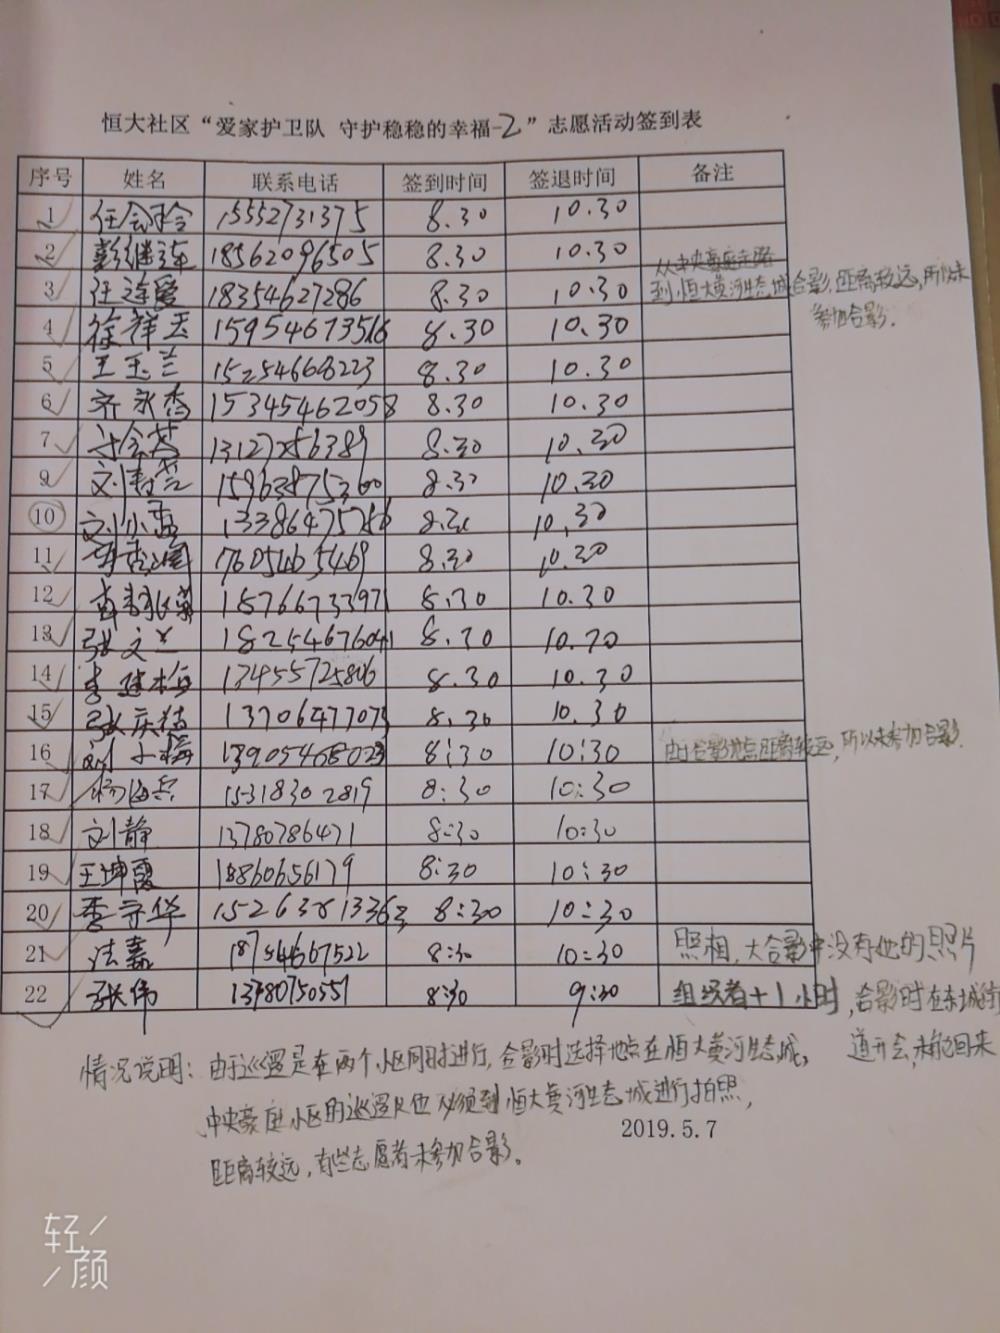 恒大社区“爱家护卫队 守护稳稳的幸福-2”志愿活动签到表
序号 姓名 联系电话 签到时间 签退时间 备注
1 任会玲 15552731375 8.30 10.30
2 彭继连 18562096505 8.30 10.30
从中央豪庭走路
3 汪连爱 18354627286 8.30 10.30 到恒大黄河生态城合影,距离较远,所以未
参加合影.
4 徐祥玉 8.30 10.30
5 王玉兰 15254668223 8.30 10.30
6 齐永香 15345462058 8.30 10.30
7 13127256389 8.30 10.30
9 15963875360 8.30 10.30
10 刘小孟 8.30 10,30
11 17605465469 8.30 10.30
12 18766733971 8.30 10.30
13 张文兰 8.30 10.30
14 李建梅 13455725806 8.30 10.30
15 张庆 13706477073 8.30 10.30
16 刘小梅 13905468023 8:30 10:30 由于合影地点距离较远,所以未参加合影.
17 杨海兵 15318302819 8:30 10:30
18 刘静 13780786471 8:30 10:30
19 王坤霞 18860656179 8:30 10:30
20 李守华 8:30 10:30
21 18754667522 8:30 10:30 照相,大合影中没有他的照片
22 张伟 8:30 9:30 组织者+1小时,合影时在东城街
道开会,未能回来
情况说明:由于巡逻是在两个小区同时进行,合影时选择地点在恒大黄河生态城,
中央豪庭小区的巡逻队也必须到恒大黄河生态城进行拍照,
2019.5.7
距离较远,有些志愿者未参加合影。
轻颜